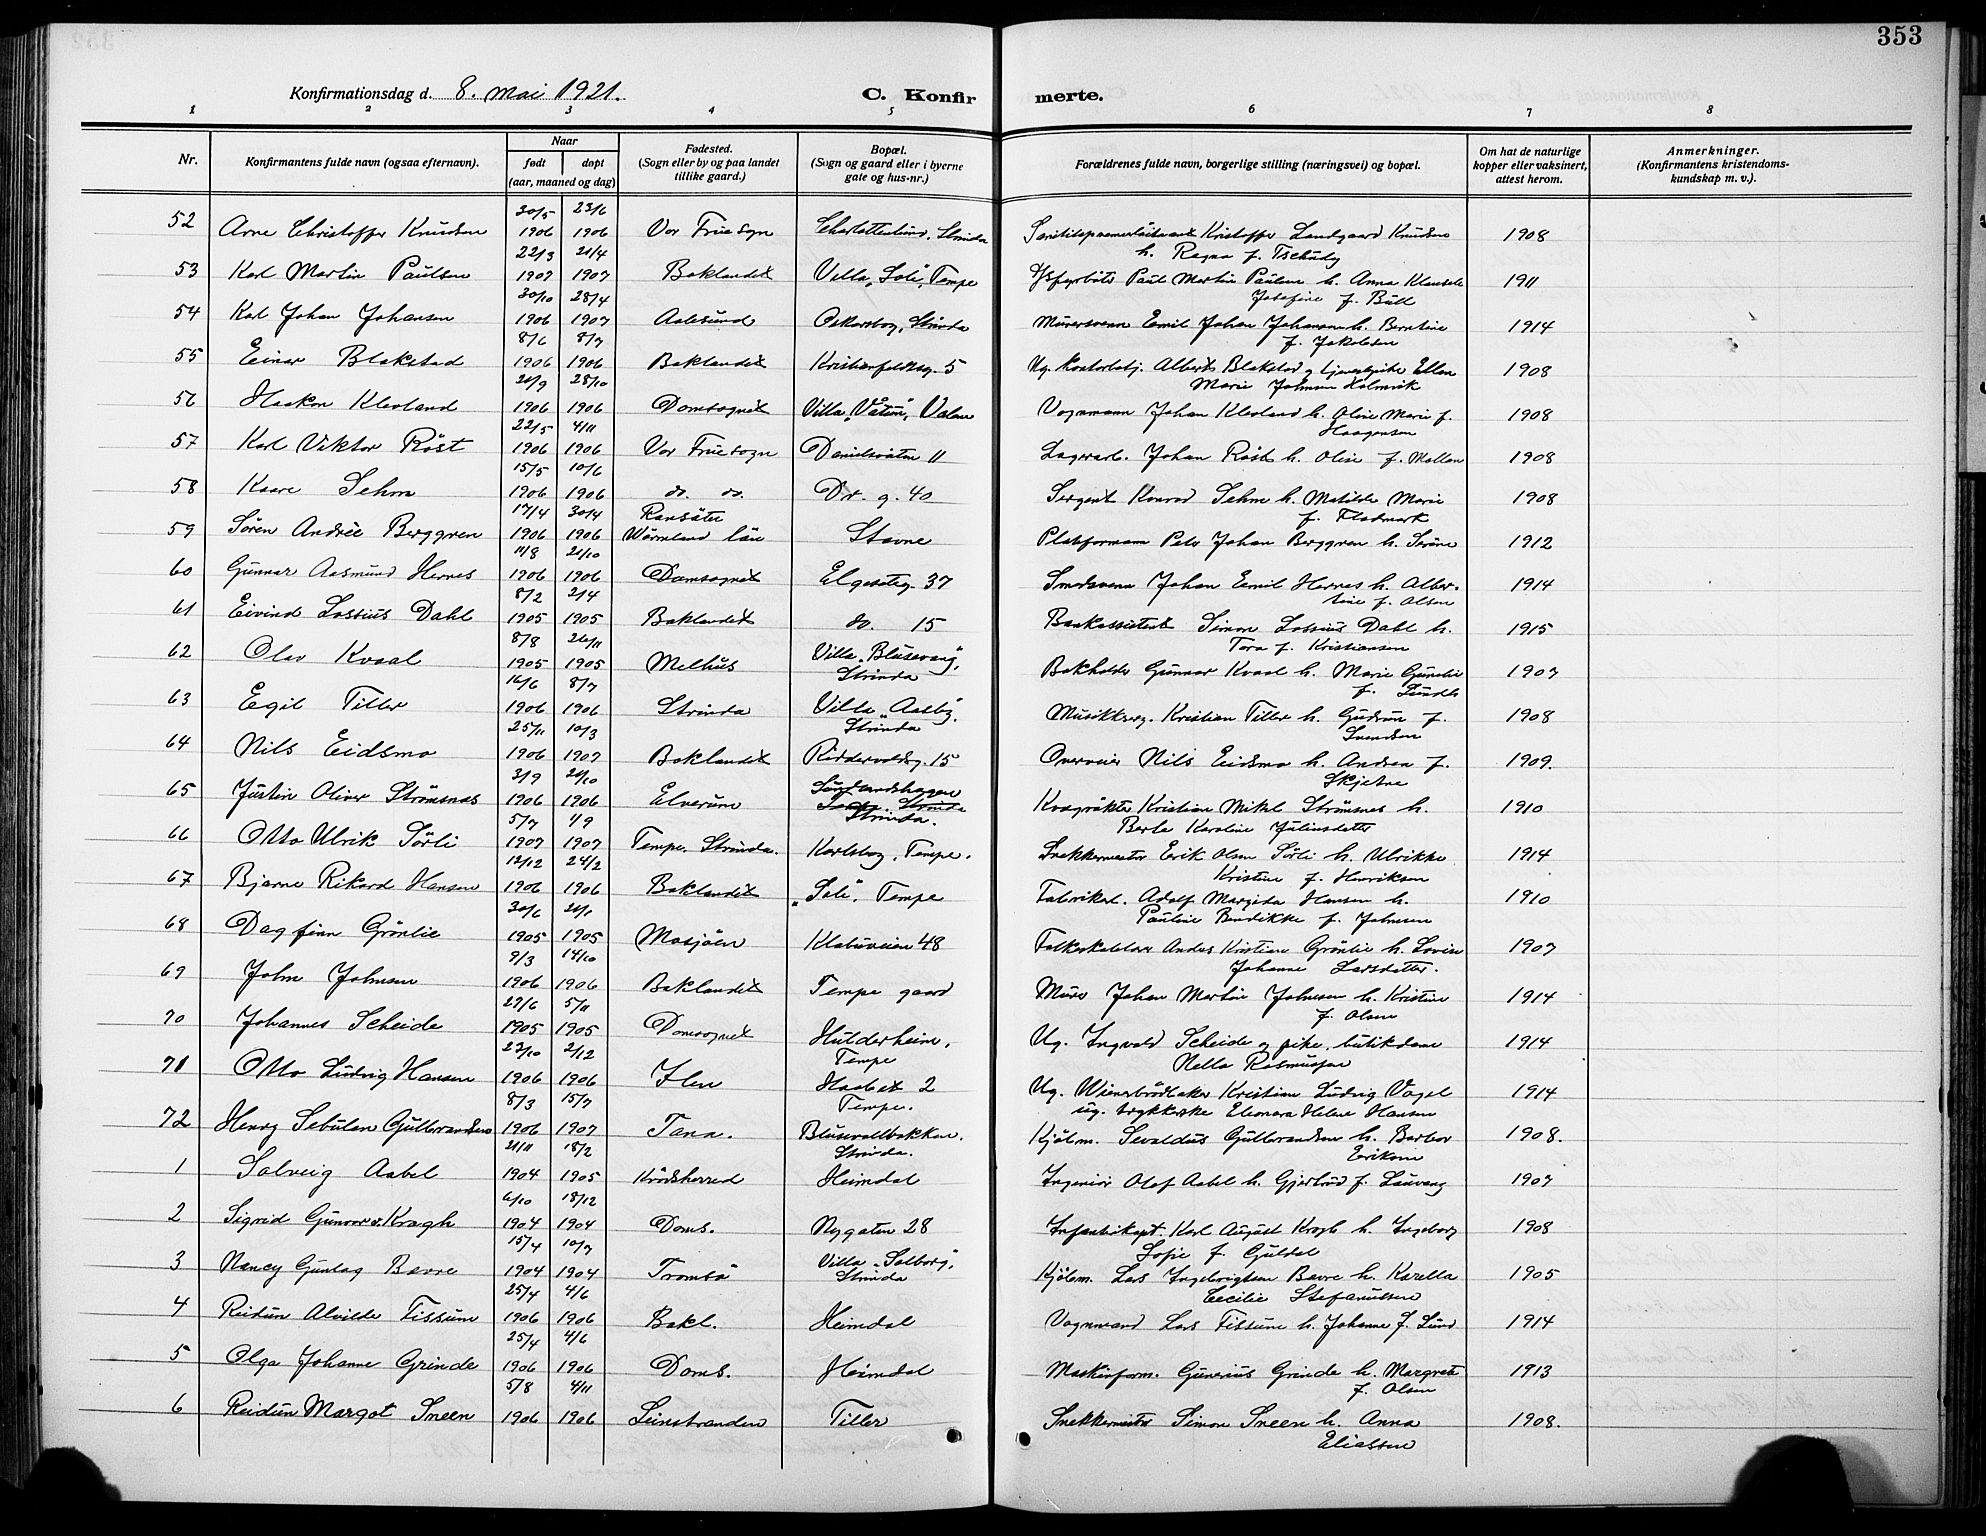 353
Konfirmationsdag d. 8. mai 1921. C. Konfirmerte.
1 2 3 4 5 6 7 8
Nr. Konfirmantens fulde navn (ogsaa efternavn). Naar født døpt (aar, maaned og dag) Fødested. (Sogn eller by og paa landet tillike gaard.) Bopæl. (Sogn og gaard eller i byerne gate og hus-nr.) Forældrenes fulde navn, borgerlige stilling (næringsvei) og bopæl. Om hat de naturlige kopper eller vaksinert, attest herom. Anmerkninger. (Konfirmantens kristendoms-kundskap m. v.).
30/5 23/6
52 Arne Christoffer Knudsen 1906 1906 Vor Frue sogn Charlottenlund, Strinda Kristoffer Landgaard Knudsen 1908
h. Ragna f. Tschudy
22/3 21/4
53 Karl Martin Paulsen 1907 1907 Baklandet Villa "Soli", Tempe Paul Martin Paulsen h. Anna 1911
Josefine f. Bull
30/10 28/4
54 Karl Johan Johansen 1906 1907 Aalesund Oskarsborg, Strinda Murersvenn Emil Johan Johansen h. Berntine 1914
f. Jakobsen
8/6 8/7
55 Einar Blakstad 1906 1906 Baklandet Kristianfeldtsg. 5 Ug. kontorbetj. Albert Blakstad og tjenestepike Ellen 1908
Marie Johnsen Holmvik
21/9 28/10
56 Haakon Kleoland 1906 1906 Domsognet Villa "Våtun", Valene Vognmann Johan Kleoland h. Oline Marie f. 1908
Haagensen
22/5 4/11
57 Karl Viktor Röst 1906 1906 Vor Frue sogn Danielsvåten 11 Lagerarb. Johan Röst h. Olise f. Mollan 1908
15/5 10/6
58 Kaare Sehm 1906 1906 do. do. Dr. g. 40 Sergent Konrad Sehm h. Matilde Marie 1908
f. Fladmark
17/4 30/4 Ransäter
59 Sören Andrée Berggren 1906 1906 Wärmland län Stavne Platformann Peter Johan Berggren h. Serine 1912
11/8 21/10
60 Gunnar Aasmund Hernes 1906 1906 Domsognet Elgesæterg. 37 Smedsvenn Johan Emil Hernes h. Alber- 1914
tine f. Olsen
8/2 2/4
61 Eivind Lossius Dahl 1905 1905 Baklandet do. 15 Bankassistent Simon Lossius Dahl h. 1915
Tora f. Kristiansen
8/8 26/11
62 Olav Kvaal 1905 1905 Melhus Villa "Blusevang", Strinda Bokholder Gunnar Kvaal h. Marie Gunelie 1907
f. Lundli
16/6 8/7
63 Egil Tiller 1906 1906 Strinda Villa "Aalbo", Strinda Musikkserg. Kristian Tiller h. Gudrun f. 1908
Svendsen
25/11 10/3
64 Nils Eidsmo 1906 1907 Baklandet Riddervoldsg. 15 Nils Eidsmo h. Andrea f. 1909.
Skjetne
3/9 21/10
65 Justin Oliver Strömsnes 1906 1906 Elverum Sunlandshagen Strinda. Kvægrökter Kristian Mikal Strömsnes h. 1910
Berte Karoline Juliusdatter
5/7 1/9
66 Otto Ulrik Sörli 1907 1907 Tempe, Strinda. Karlsborg, Tempe. Snekkermester Erik Olsen Sörli h. Ulrikke 1914
Kristine f. Henriksen
12/12 24/2
67 Bjarne Rikard Hansen 1906 1906 Baklandet "Soli", Tempe Fabrikarb. Adolf Margido Hansen h. 1910
Pauline Bendikke f. Johnsen
30/6 21/1
68 Dagfinn Grönlie 1905 1905 Mosjöen Klæbuveien 48 Folkeskolelærer Anders Kristian Grönlie h. Lovise 1907
Johanne Larsdatter.
9/3 14/10
69 John Johnsen 1906 1906 Baklandet Tempe gaard Murer Johan Martin Johnsen h. Kristine 1914
f. Olsen
29/6 5/11
70 Johannes Scheide 1905 1905 Domsognet Hulderheim, Tempe Ug. Ingvald Scheide og pike, butikdame 1914
Nella Rasmussen
23/10 2/12
71 Otto Ludvig Hansen 1906 1906 Ilen Haabet 2 Tempe. Ug. Wienerbrödbaker Kristian Ludvig Vagel 1914
ug. trykkerske Eleonora Helene Hansen
8/3 15/7
72 Henry Sebulon Gulbrandsen 1906 1907 Tana. Blusevollbakken. Strinda. Kjöbm. Sevaldus Gulbrandsen h. Barbor 1908.
Eriksen
21/11 18/2
1 Solveig Aabel 1904 1905 Krödsherred Heimdal Ingeniör Olaf Aabel h. Gjertrud f. Lauvang 1907
6/10 18/12
2 Sigrid Gunvor v. Krogh 1904 1904 Doms. Nygaten 28 Infanterikapt. Karl August Krogh h. Ingeborg 1908
Sofie f. Guldal
15/4 10/7
3 Nancy Gunlag Bevre 1904 1904 Tromsö Villa "Solborg", Strinda Kjöbm. Lars Ingebrigtsen Bevre h. Karella 1905
Cecilie Stefanussen
25/4 4/6
4 Reidun Alvilde Tissum 1906 1906 Bakl. Heimdal Vognmand Lars Tissum h. Johanne f. Lund 1914
25/4 4/6
5 Olga Johanne Grinde 1906 1906 Doms. Heimdal Maskinform. Gunerius Grinde h. Margrete 1913
f. Olsen
5/8 4/11
6 Reidun Margot Sneen 1906 1906 Leinstranden Tiller Snekkermester Simon Sneen h. Anna 1908.
Eliassen